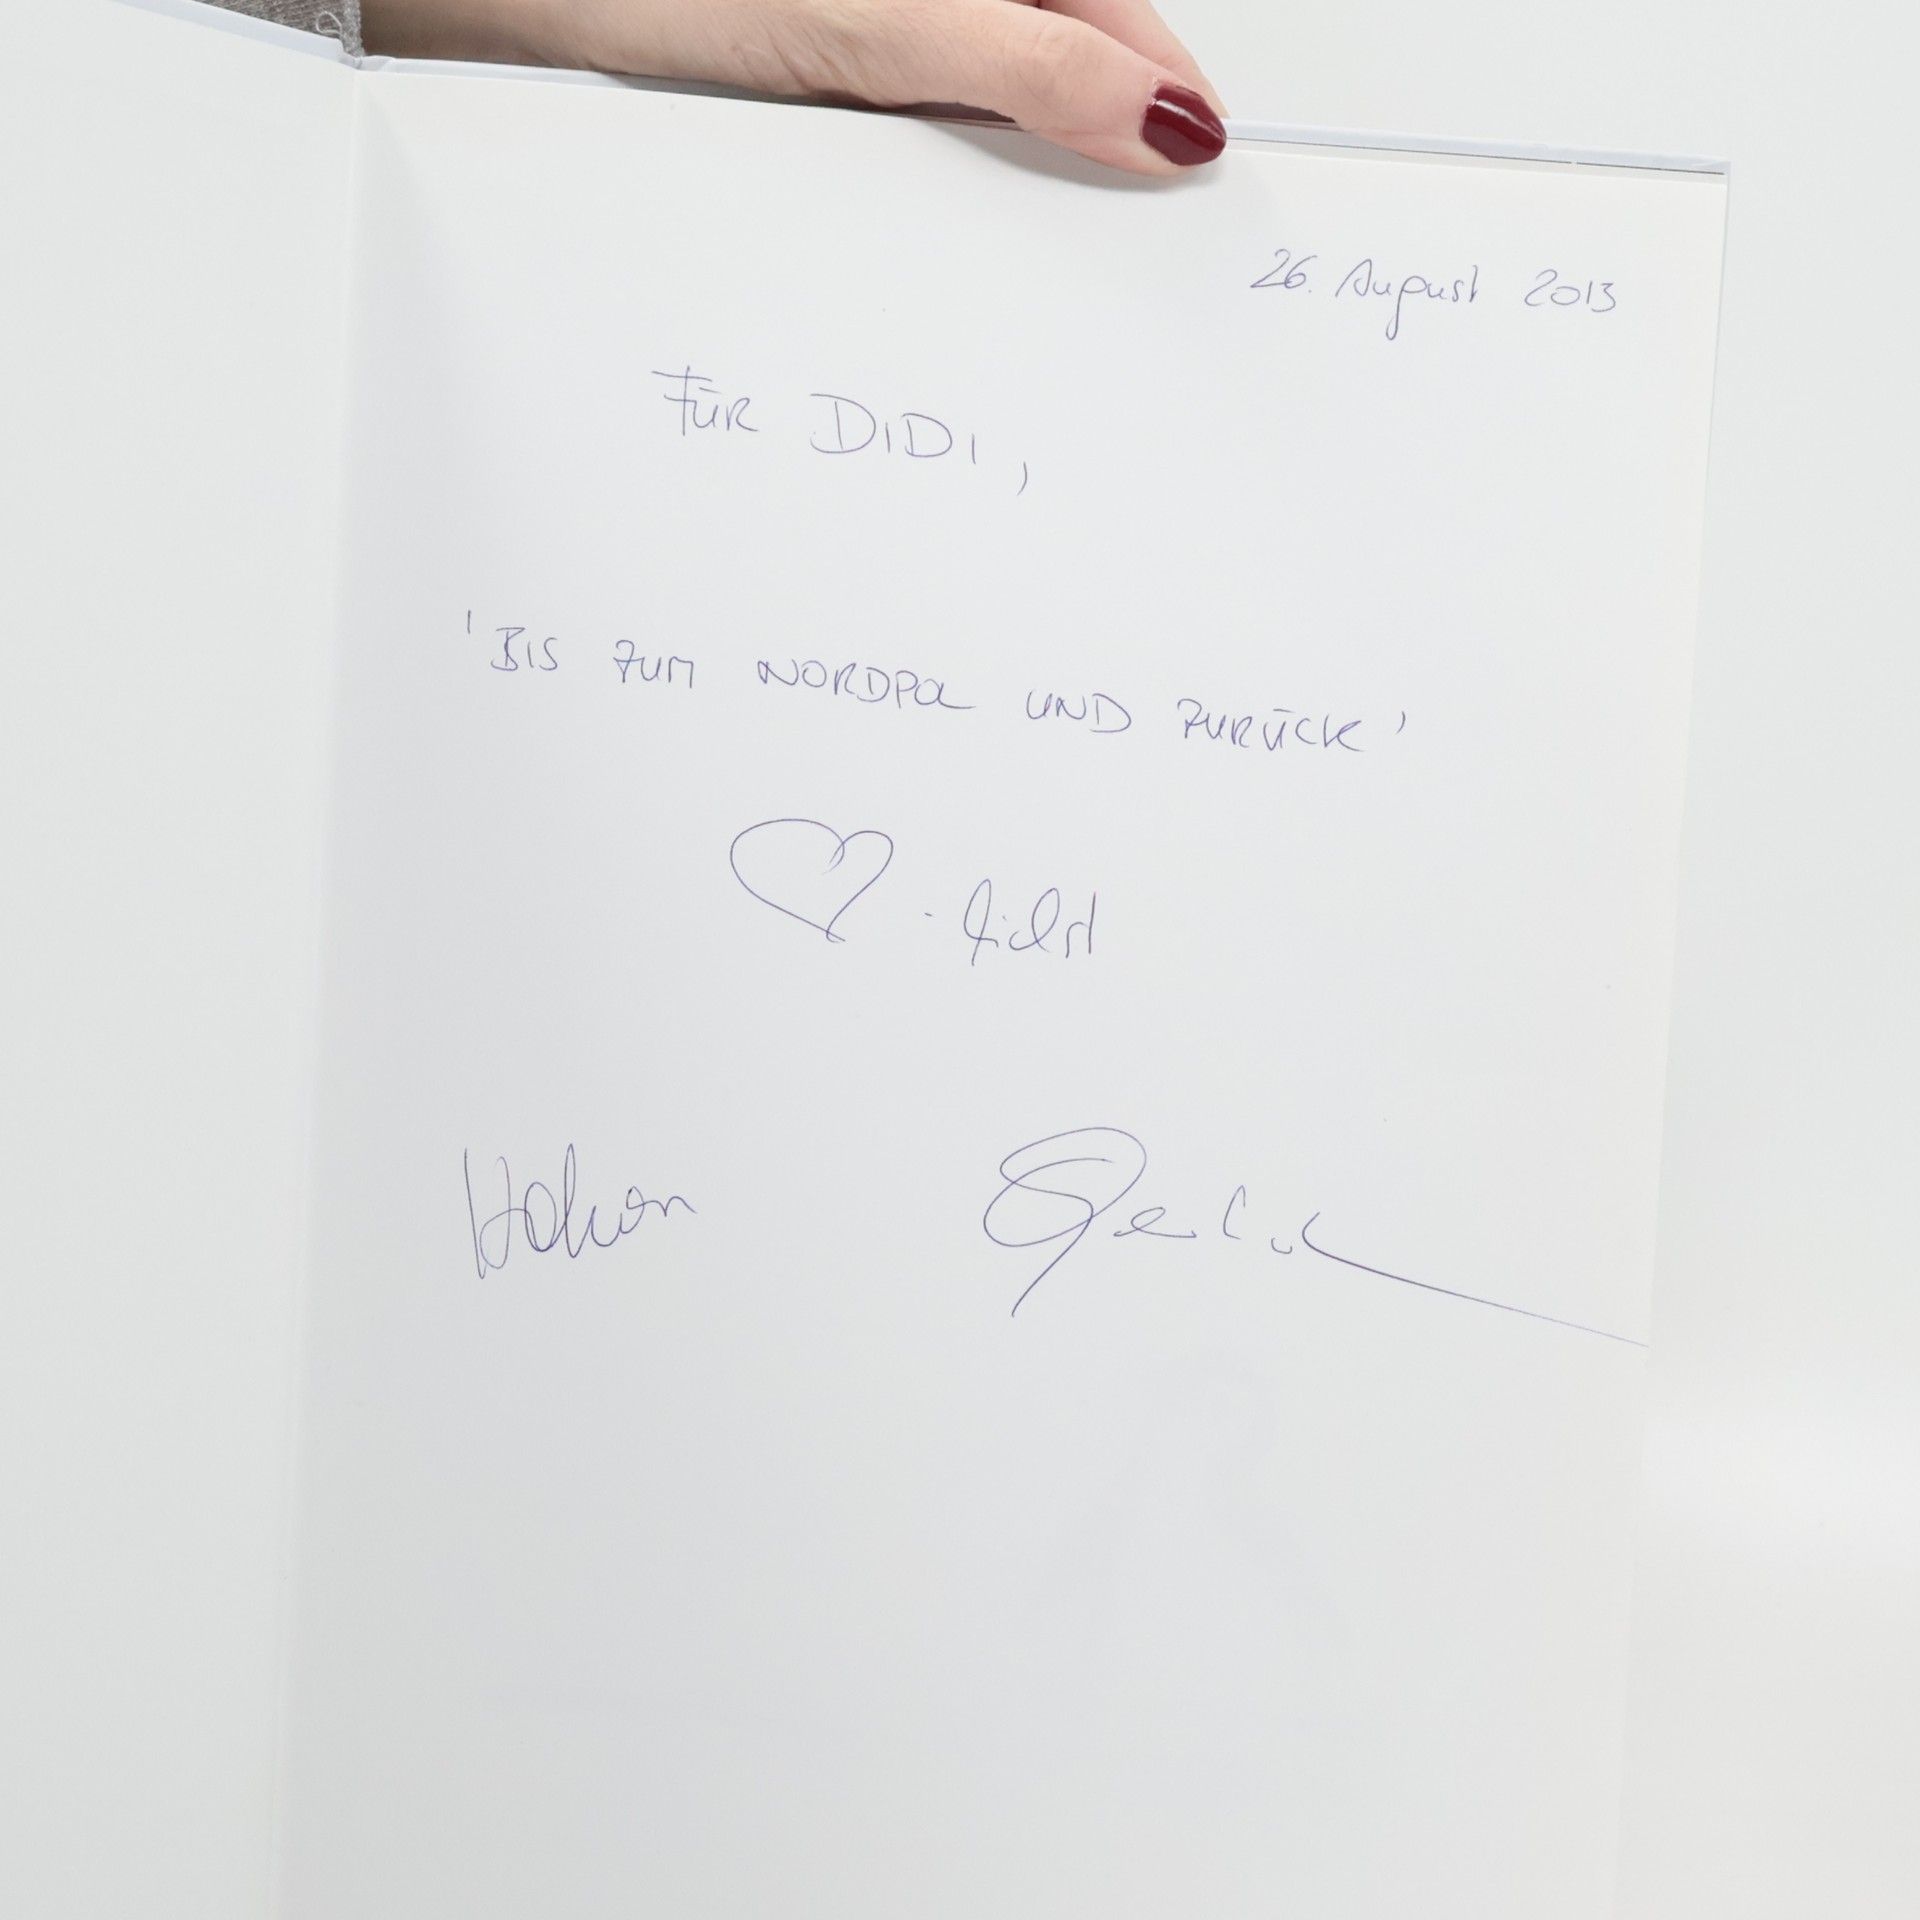 26. August 2013
FÜR DIDI,
'BIS ZUM NORDPOL UND ZURÜCK'
♡-lichst
Hakon